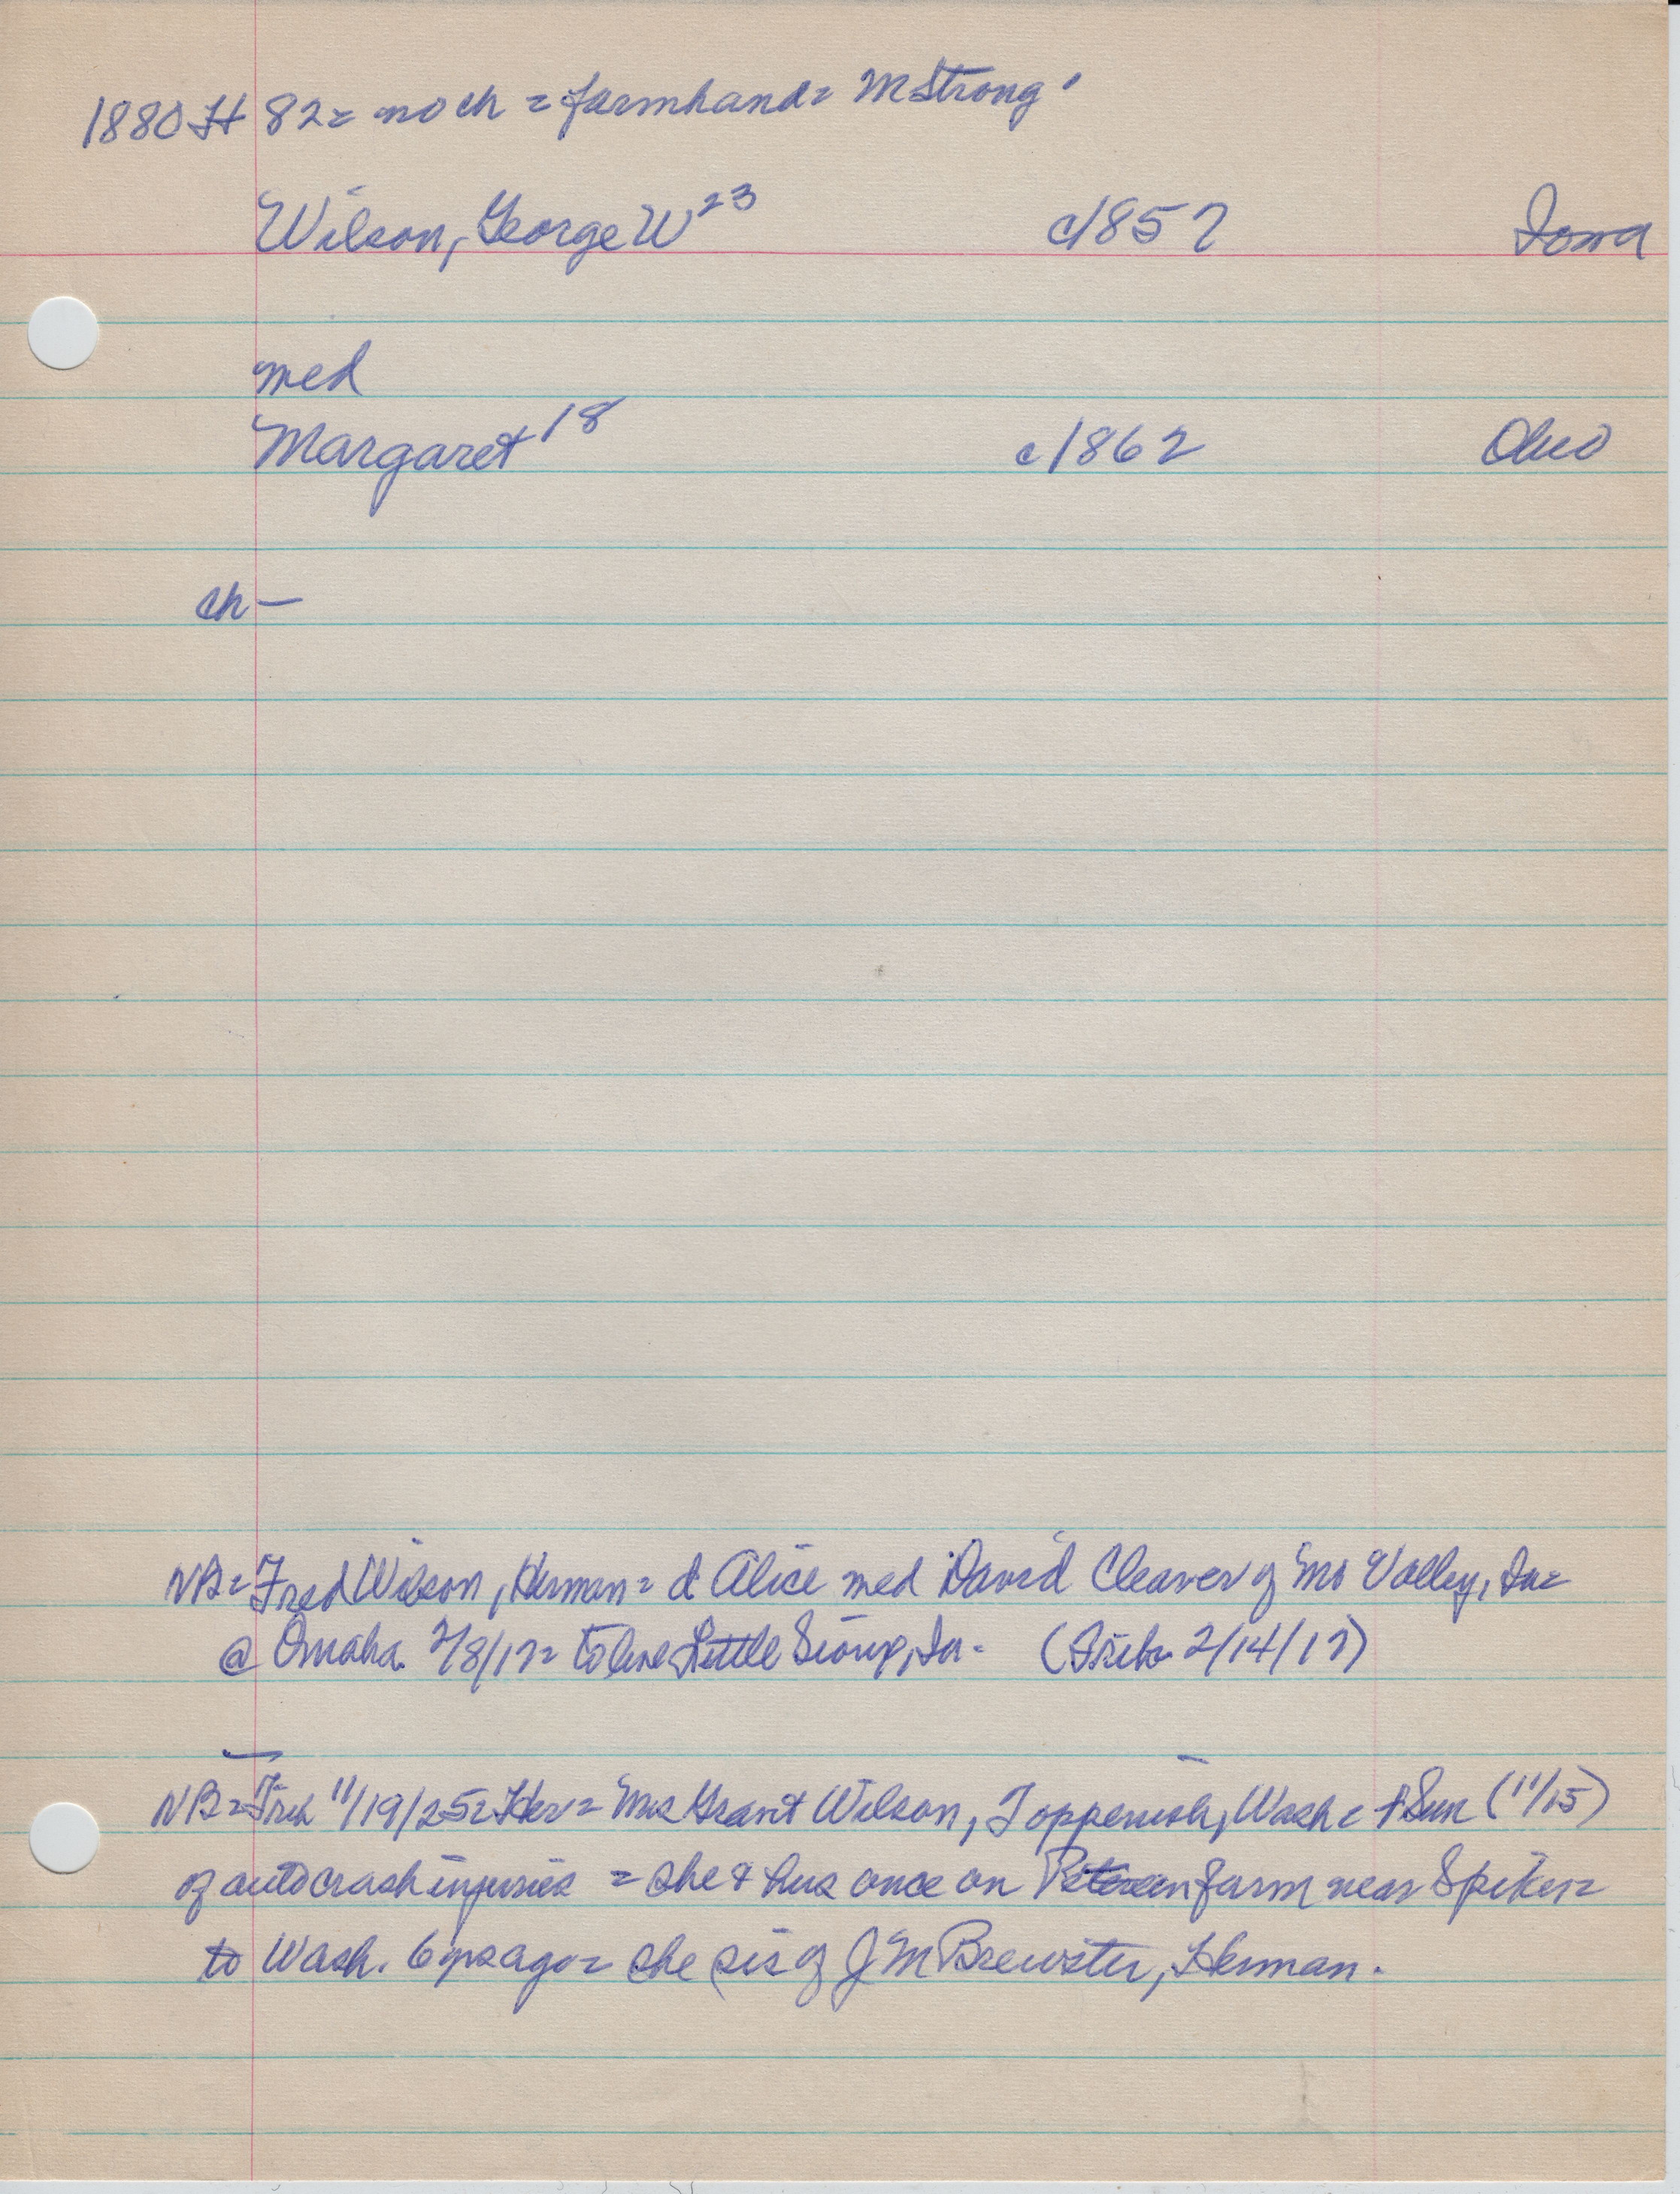 1880 H 82= no ch = farmhand= M Strong
Wilson, George W 23 c1857 Iowa
med
Margaret 18 c1862 Ohio
ch —
NB= Fred Wilson, Herman= d Alice med David Cleaver of Mo Valley, Ia=
@ Omaha 2/8/17= to live Little Sioux, Ia. (Trib 2/14/17)
NB= Trib 11/19/25= Her= Mrs Grant Wilson, Toppenish, Wash= † Sun (11/15)
of auto crash injuries = she & hus once on farm near Spiker=
to Wash. 6 yrs ago= she sis of J M Brewster, Herman.